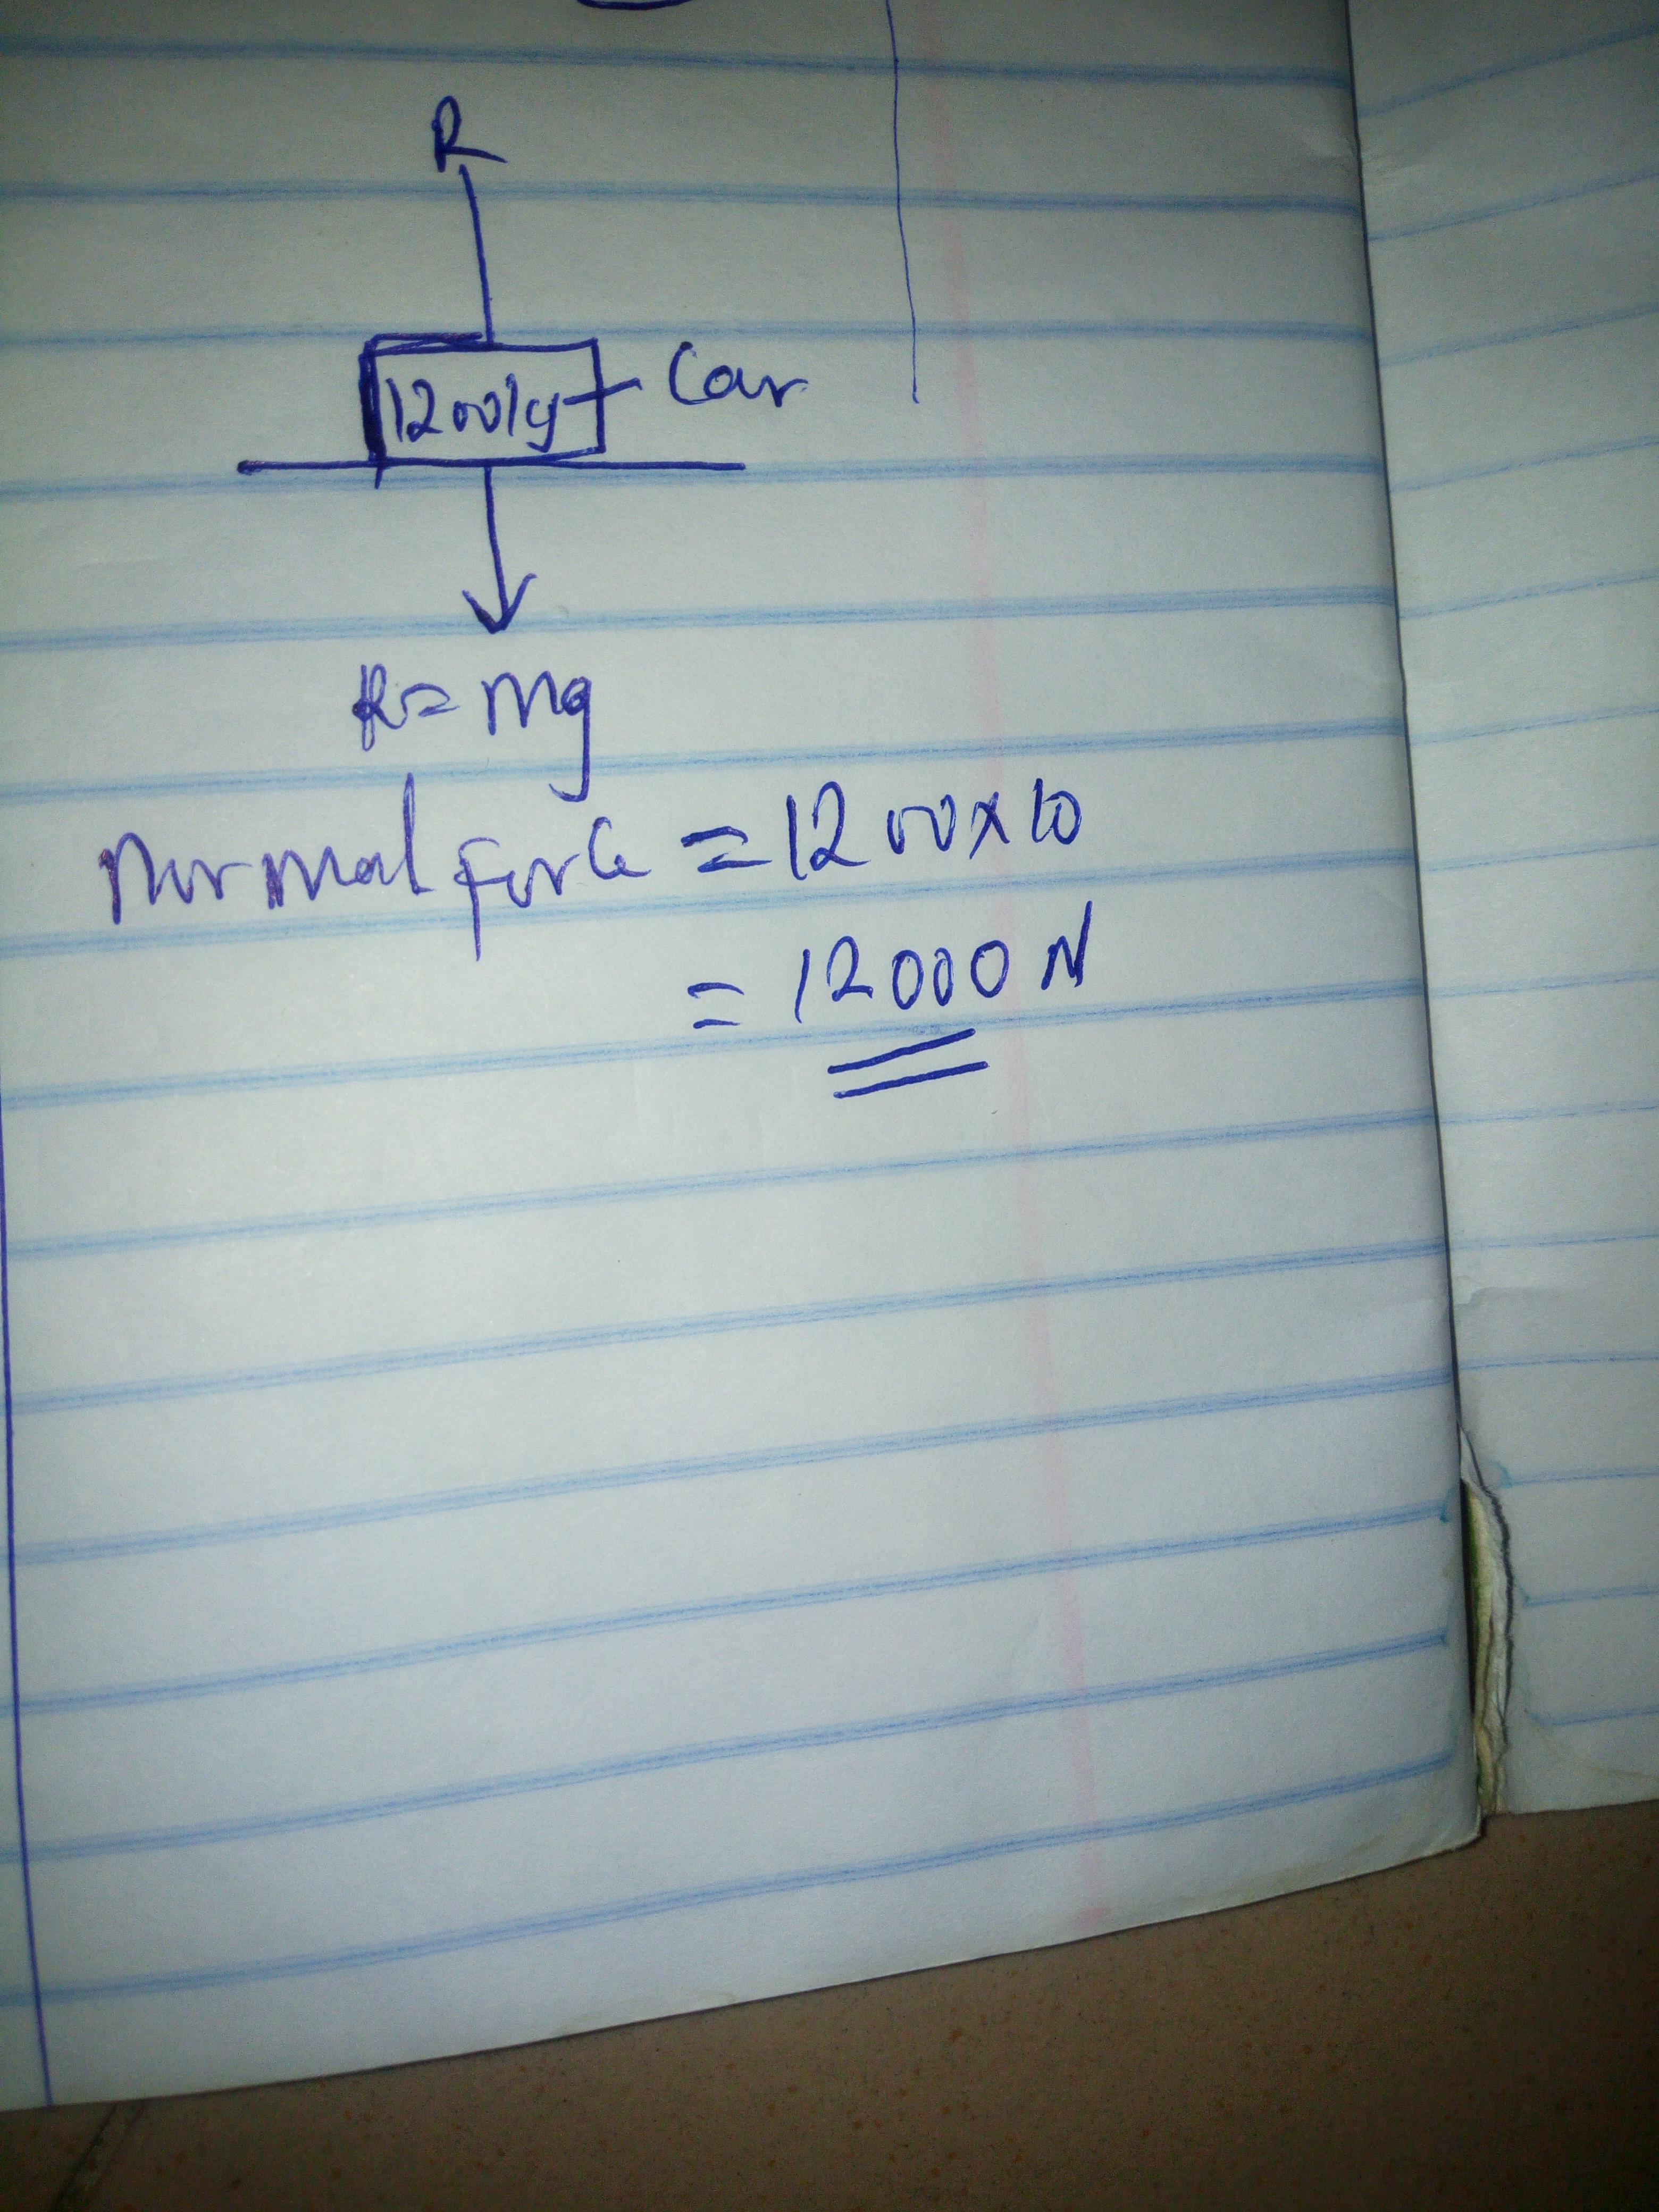 R
1200kg
Car
R = mg
Normal force = 1200 x 10
= 12000 N